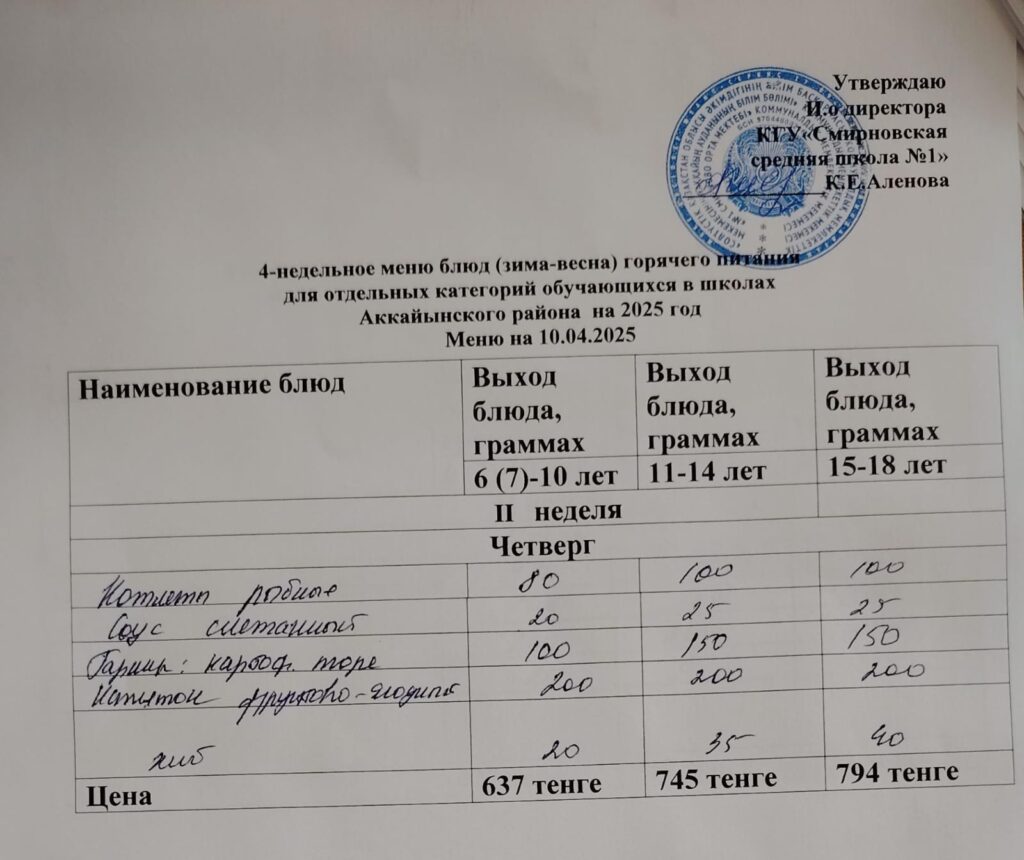 Утверждаю
И.о директора
КГУ«Смирновская
средняя школа №1»
К.Е.Аленова
4-недельное меню блюд (зима-весна) горячего питания
для отдельных категорий обучающихся в школах
Аккайынского района на 2025 год
Меню на 10.04.2025
Наименование блюд
Выход блюда, граммах
Выход блюда, граммах
Выход блюда, граммах
6 (7)-10 лет 11-14 лет 15-18 лет
II неделя
Четверг
Котлеты рыбные 80 100 100
Соус сметанный 20 25 25
Гарнир: картоф. пюре 100 150 150
Напиток фруктово-ягодный 200 200 200
хлеб 20 35 40
Цена 637 тенге 745 тенге 794 тенге